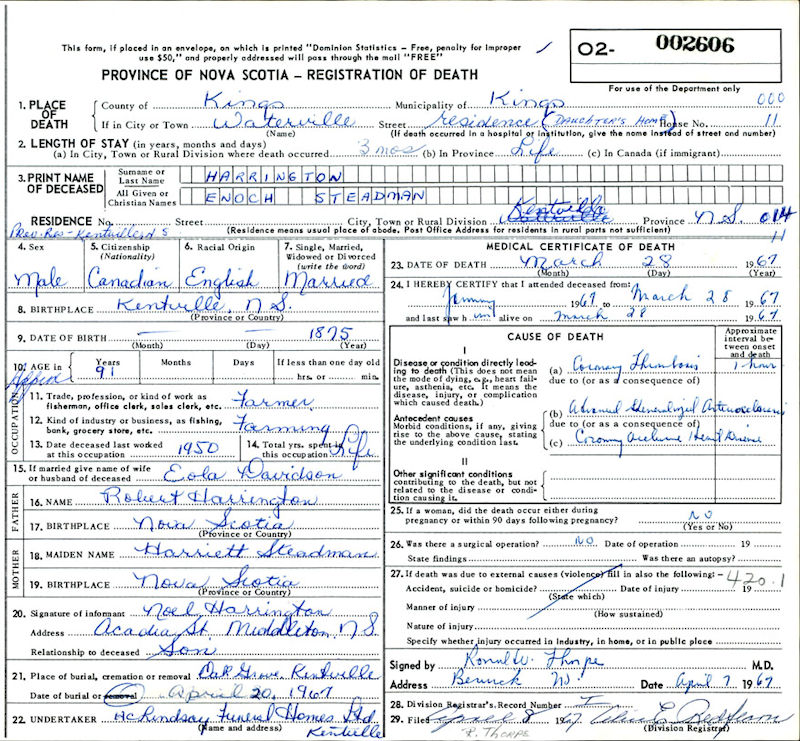 This form, if placed in an envelope, on which is printed "Dominion Statistics – Free, penalty for improper
use $50," and properly addressed will pass through the mail "FREE"
O2- 002606
PROVINCE OF NOVA SCOTIA – REGISTRATION OF DEATH
For use of the Department only
1. PLACE OF DEATH
County of Kings Municipality of Kings 000
If in City or Town Waterville Street residence (DAUGHTER'S HOME) House No. 11
(Name) (If death occurred in a hospital or institution, give the name instead of street and number)
2. LENGTH OF STAY (in years, months and days)
(a) In City, Town or Rural Division where death occurred 3 mos (b) In Province Life (c) In Canada (if immigrant)
3. PRINT NAME OF DECEASED
Surname or Last Name HARRINGTON
All Given or Christian Names ENOCH STEADMAN
RESIDENCE No. Street City, Town or Rural Division Kentville Province N.S. 014
Prev. Res - Kentville N S (Residence means usual place of abode. Post Office Address for residents in rural parts not sufficient) 11
4. Sex Male
5. Citizenship (Nationality) Canadian
6. Racial Origin English
7. Single, Married, Widowed or Divorced (write the word) Married
8. BIRTHPLACE Kentville, N.S.
(Province or Country)
9. DATE OF BIRTH — — 1875
(Month) (Day) (Year)
10. AGE in Years 91 Months Days If less than one day old hrs. or min.
Approx
OCCUPATION
11. Trade, profession, or kind of work as fisherman, office clerk, sales clerk, etc. Farmer
12. Kind of industry or business, as fishing, bank, grocery store, etc. Farming
13. Date deceased last worked at this occupation 1950
14. Total yrs. spent in this occupation Life
15. If married give name of wife or husband of deceased Eola Davidson
FATHER
16. NAME Robert Harrington
17. BIRTHPLACE Nova Scotia
(Province or Country)
MOTHER
18. MAIDEN NAME Harriett Steadman
19. BIRTHPLACE Nova Scotia
(Province or Country)
20. Signature of informant Noel Harrington
Address Acadia St. Middleton, N.S.
Relationship to deceased Son
21. Place of burial, cremation or removal Oak Grove, Kentville
Date of burial or removal April 20, 1967
22. UNDERTAKER Funeral Homes Ltd.
(Name and address) Kentville
MEDICAL CERTIFICATE OF DEATH
23. DATE OF DEATH March 28 1967
(Month) (Day) (Year)
24. I HEREBY CERTIFY that I attended deceased from:
January 1967 to March 28 1967
and last saw him alive on March 28 1967
CAUSE OF DEATH
Approximate interval between onset and death
I
Disease or condition directly leading to death (This does not mean the mode of dying, e.g., heart failure, asthenia, etc. It means the disease, injury, or complication which caused death.)
(a) Coronary Thrombosis 1 hour
due to (or as a consequence of)
Antecedent causes
Morbid conditions, if any, giving rise to the above cause, stating the underlying condition last.
(b) Advanced Generalized Arteriosclerosis
due to (or as a consequence of)
(c) Coronary Heart Disease
II
Other significant conditions
contributing to the death, but not related to the disease or condition causing it.
25. If a woman, did the death occur either during pregnancy or within 90 days following pregnancy? NO
(Yes or No)
26. Was there a surgical operation? NO Date of operation 19
State findings Was there an autopsy?
27. If death was due to external causes (violence) fill in also the following: – 420.1
Accident, suicide or homicide? Date of injury 19
(State which)
Manner of injury
(How sustained)
Nature of injury
Specify whether injury occurred in industry, in home, or in public place
Signed by Ronald W. Thorpe M.D.
Address Berwick NS Date April 7 1967
28. Division Registrar's Record Number
29. Filed April 8 1967
R. Thorpe (Division Registrar)